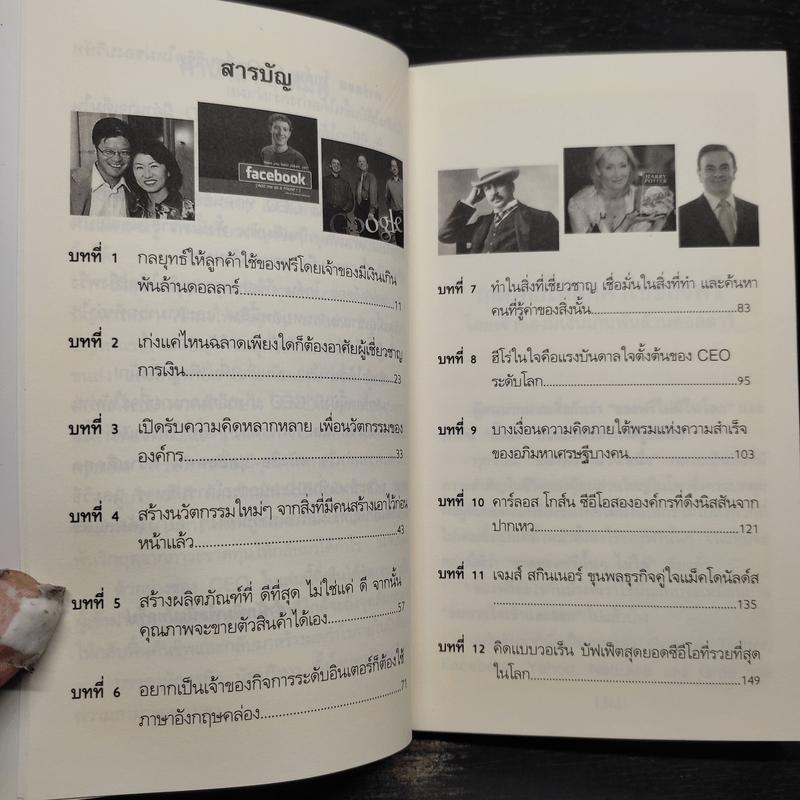 สารบัญ
facebook
Google
บทที่ 1 กลยุทธ์ให้ลูกค้าใช้ของฟรีโดยเจ้าของมีเงินเกิน
พันล้านดอลลาร์..........11
บทที่ 2 เก่งแค่ไหนฉลาดเพียงใดก็ต้องอาศัยผู้เชี่ยวชาญ
การเงิน..........23
บทที่ 3 เปิดรับความคิดหลากหลาย เพื่อนวัตกรรมของ
องค์กร..........33
บทที่ 4 สร้างนวัตกรรมใหม่ๆ จากสิ่งที่มีคนสร้างเอาไว้ก่อน
หน้าแล้ว..........43
บทที่ 5 สร้างผลิตภัณฑ์ที่ ดีที่สุด ไม่ใช่แค่ ดี จากนั้น
คุณภาพจะขายตัวสินค้าได้เอง..........57
บทที่ 6 อยากเป็นเจ้าของกิจการระดับอินเตอร์ก็ต้องใช้
ภาษาอังกฤษคล่อง..........71
HARRY
POTTER
บทที่ 7 ทำในสิ่งที่เชี่ยวชาญ เชื่อมั่นในสิ่งที่ทำ และค้นหา
คนที่รู้ค่าของสิ่งนั้น..........83
บทที่ 8 ฮีโร่ในใจคือแรงบันดาลใจตั้งต้นของ CEO
ระดับโลก..........95
บทที่ 9 บางเงื่อนความคิดภายใต้พรมแห่งความสำเร็จ
ของอภิมหาเศรษฐีบางคน..........103
บทที่ 10 คาร์ลอส โกส์น ซีอีโอสององค์กรที่ดึงนิสสันจาก
ปากเหว..........121
บทที่ 11 เจมส์ สกินเนอร์ ขุนพลธุรกิจคู่ใจแม็คโดนัลด์ส
..........135
บทที่ 12 คิดแบบวอเร็น บัฟเฟ็ตสุดยอดซีอีโอที่รวยที่สุด
ในโลก..........149